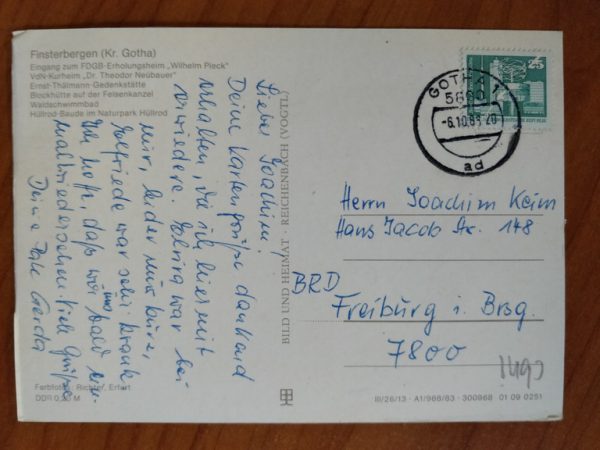 Finsterbergen (Kr. Gotha)
Eingang zum FDGB-Erholungsheim „Wilhelm Pieck"
VdN-Kurheim „Dr. Theodor Neubauer"
Ernst-Thälmann-Gedenkstätte
Blockhütte auf der Felsenkanzel
Waldschwimmbad
Hüllrod-Baude im Naturpark Hüllrod
Lieber Joachim!
Deine Kartengrüße dankend
erhalten, die ich hiermit
erwiedere. war bei
mir, leider nur kurz,
Elfriede war sehr krank
Ich hoffe, daß wir uns bald
mal wiedersehen. Viele Grüße
Deine Gerda
Farbfotos: Richter, Erfurt
DDR 0,25 M
BILD UND HEIMAT · REICHENBACH (VOGTL)
25
GOTHA 1
-6.10.83-20
ad
Herrn Joachim Keim
Hans Jacob Str. 148
BRD
Freiburg i. Brsg.
7800
III/26/13 · A1/966/83 · 300868 01 09 0251